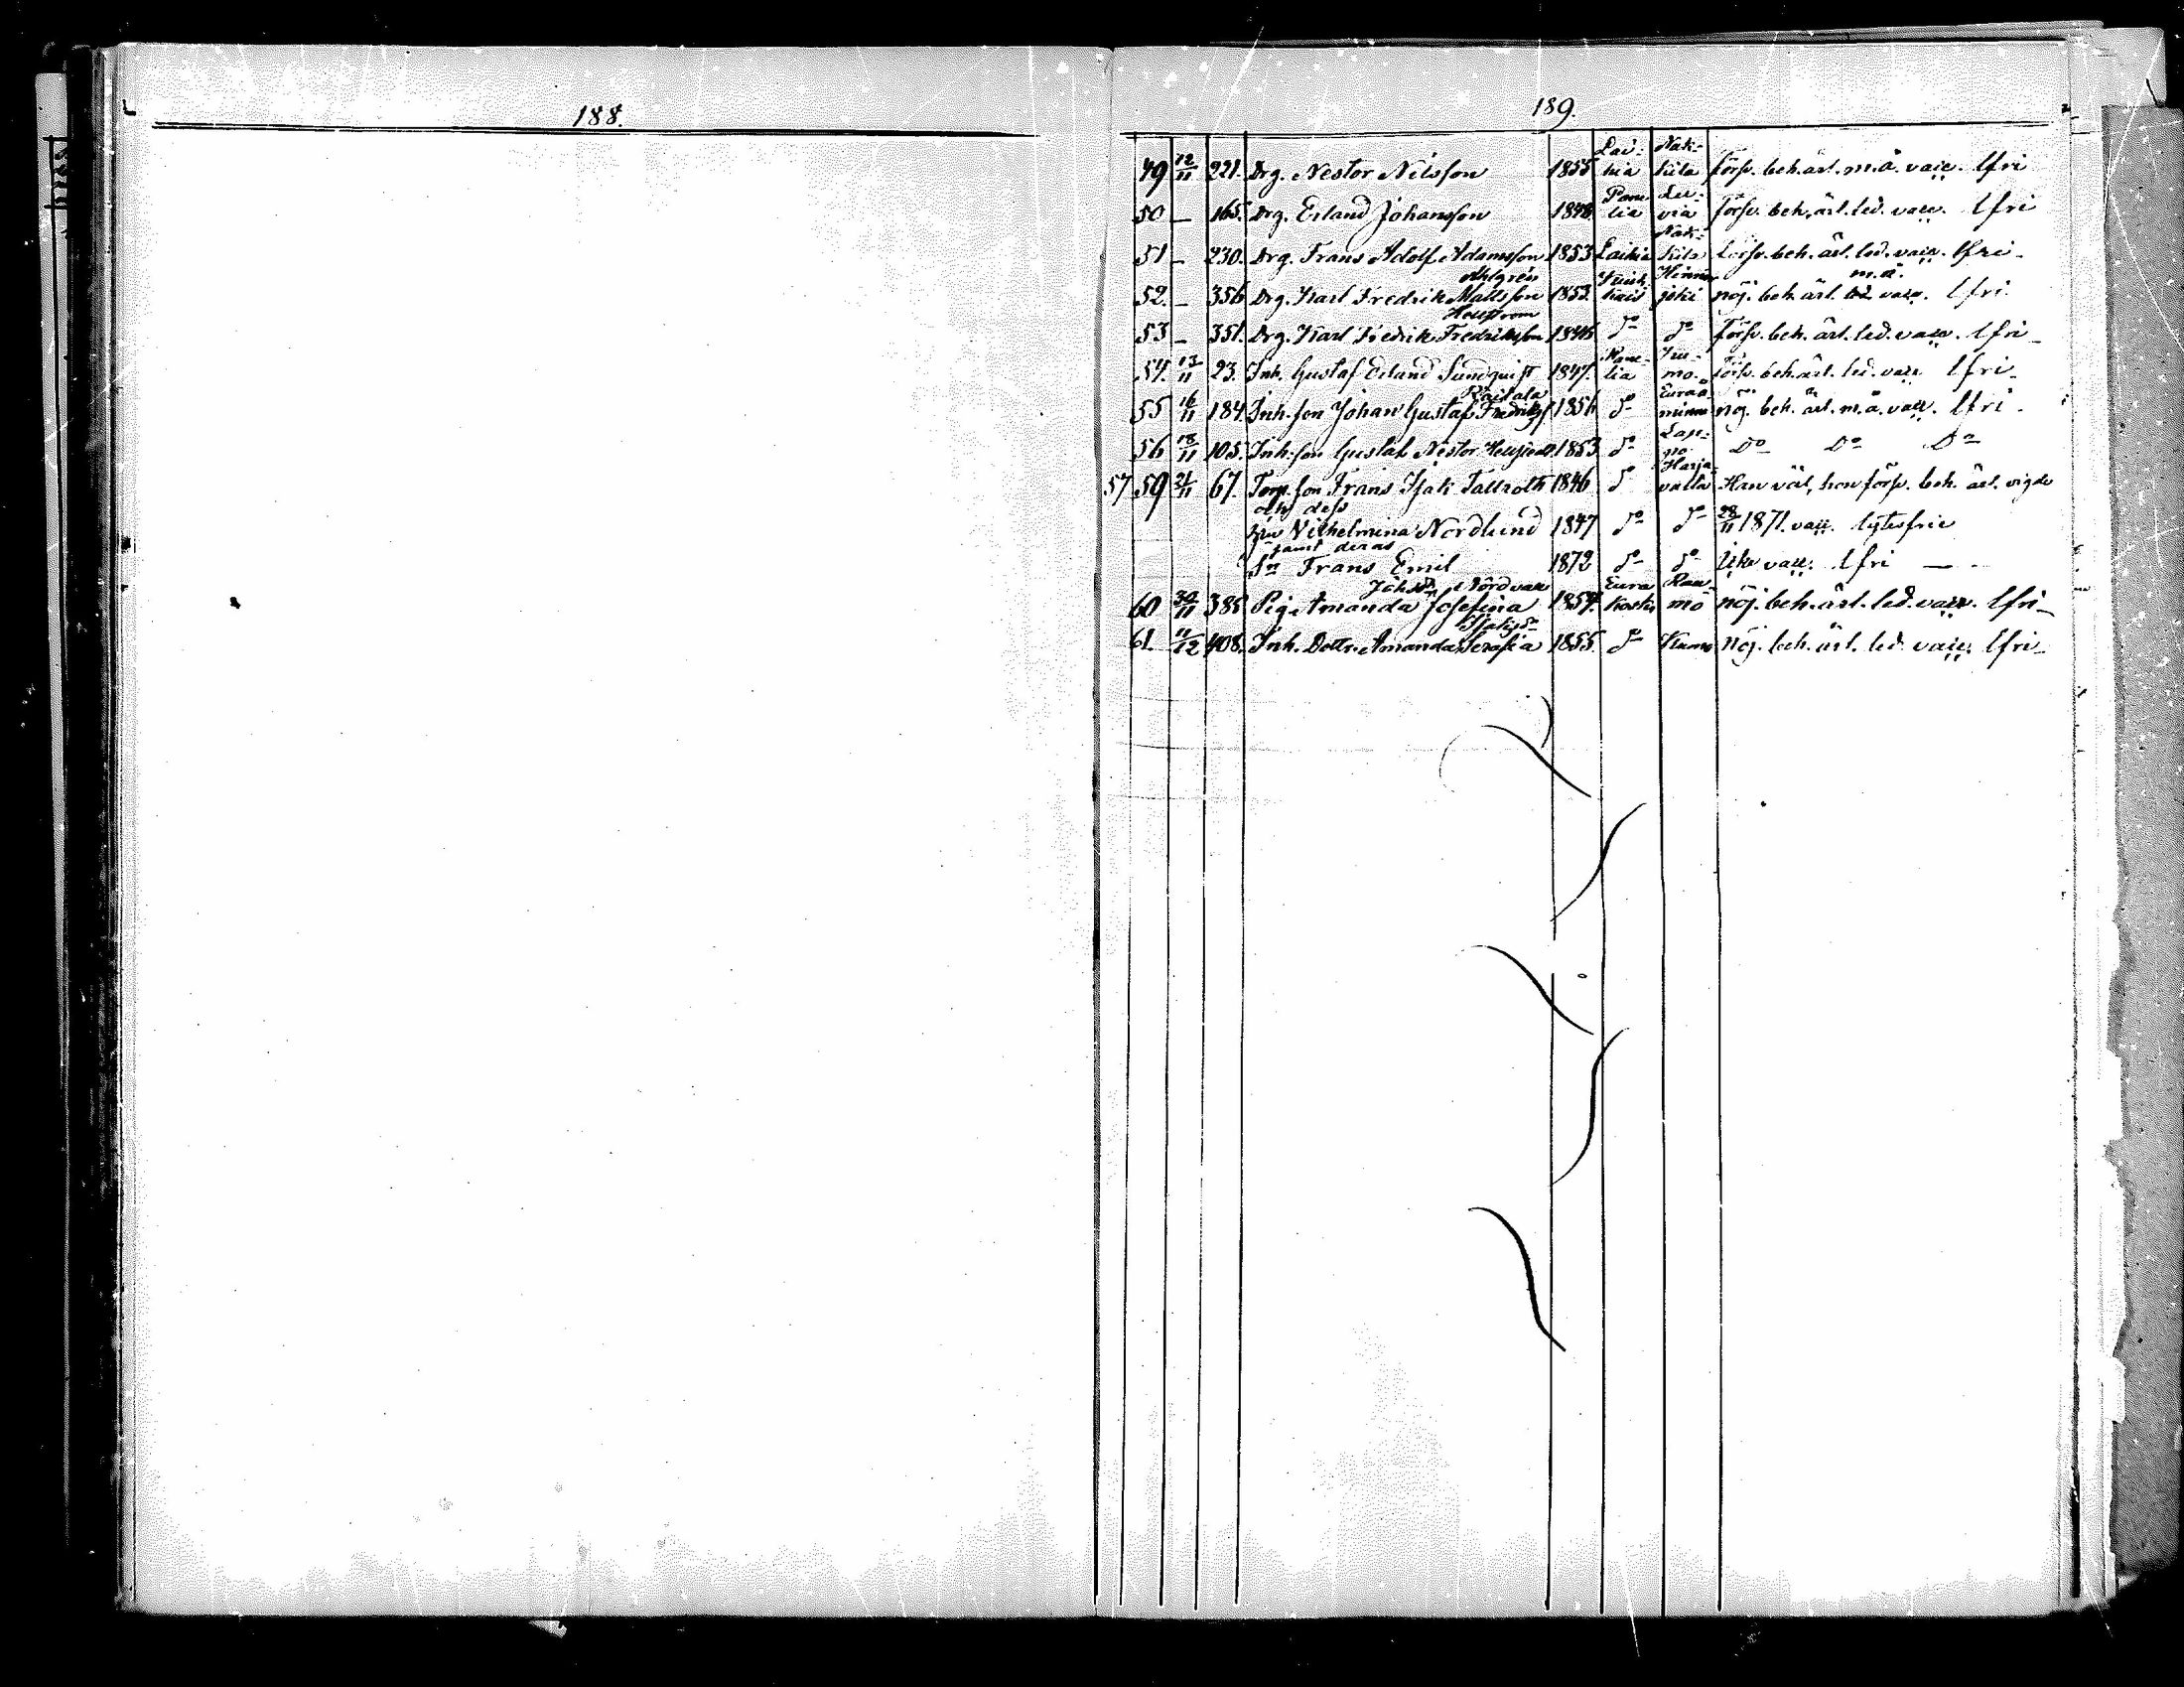 188.
189.
49 12/11 221. Drg. Nestor Nilsson 1855 Lai-hia Nak-kila försv. beh. ärl. m.ä. vacc. lfri
50 — 165. Drg. Erland Johansson 1848 Pane-lia Lu-via försv. beh. ärl. led. vacc. lfri
51 — 230. Drg. Frans Adolf Adamsson 1853 Nak-kila försv. beh. ärl. led. vacc. lfri
Ahlgrén
52. — 356 Drg. Karl Fredrik Mattsson 1853 Hinner-joki nöj. beh. ärl. m.ä. vacc. lfri
Hellstrom
53 — 351. Drg. Karl Fredrik Fredriksson 1846 do do försv. beh. ärl. led. vacc. lfri
54. 13/11 23. Inh. Gustaf Erland Sundquist 1847. Pane-lia mo. försv. beh. ärl. led. vacc. lfri
55 16/11 184. Inh. son Johan Gustaf Fredriksf 1856 do Euraå-minne nöj. beh. ärl. m.ä. vacc. lfri
56 18/11 105. Inh. son Gustaf Nestor 1853 do Lap-po Do Do Do
57 59 21/11 67. Torp. son Frans Isak Tallroth 1846 do Harja-valta Han väl, hon försv. beh. ärl. vigde
och dess
hu Vilhelmina Nordlund 1847 do do 28/11 1871. vacc. lytesfrie
samt deras
Sn Frans Emil 1872 do do Icke vacc. lfri —
60 30/11 385 Pig. Amanda Josefina 1854. Eura Kosti Rau-mo nöj. beh. ärl. led. vacc. lfri
61. 11/12 408. Inh. Dottr. Amanda Serafia 1855. do Kumo nöj. beh. ärl. led. vacc. lfri